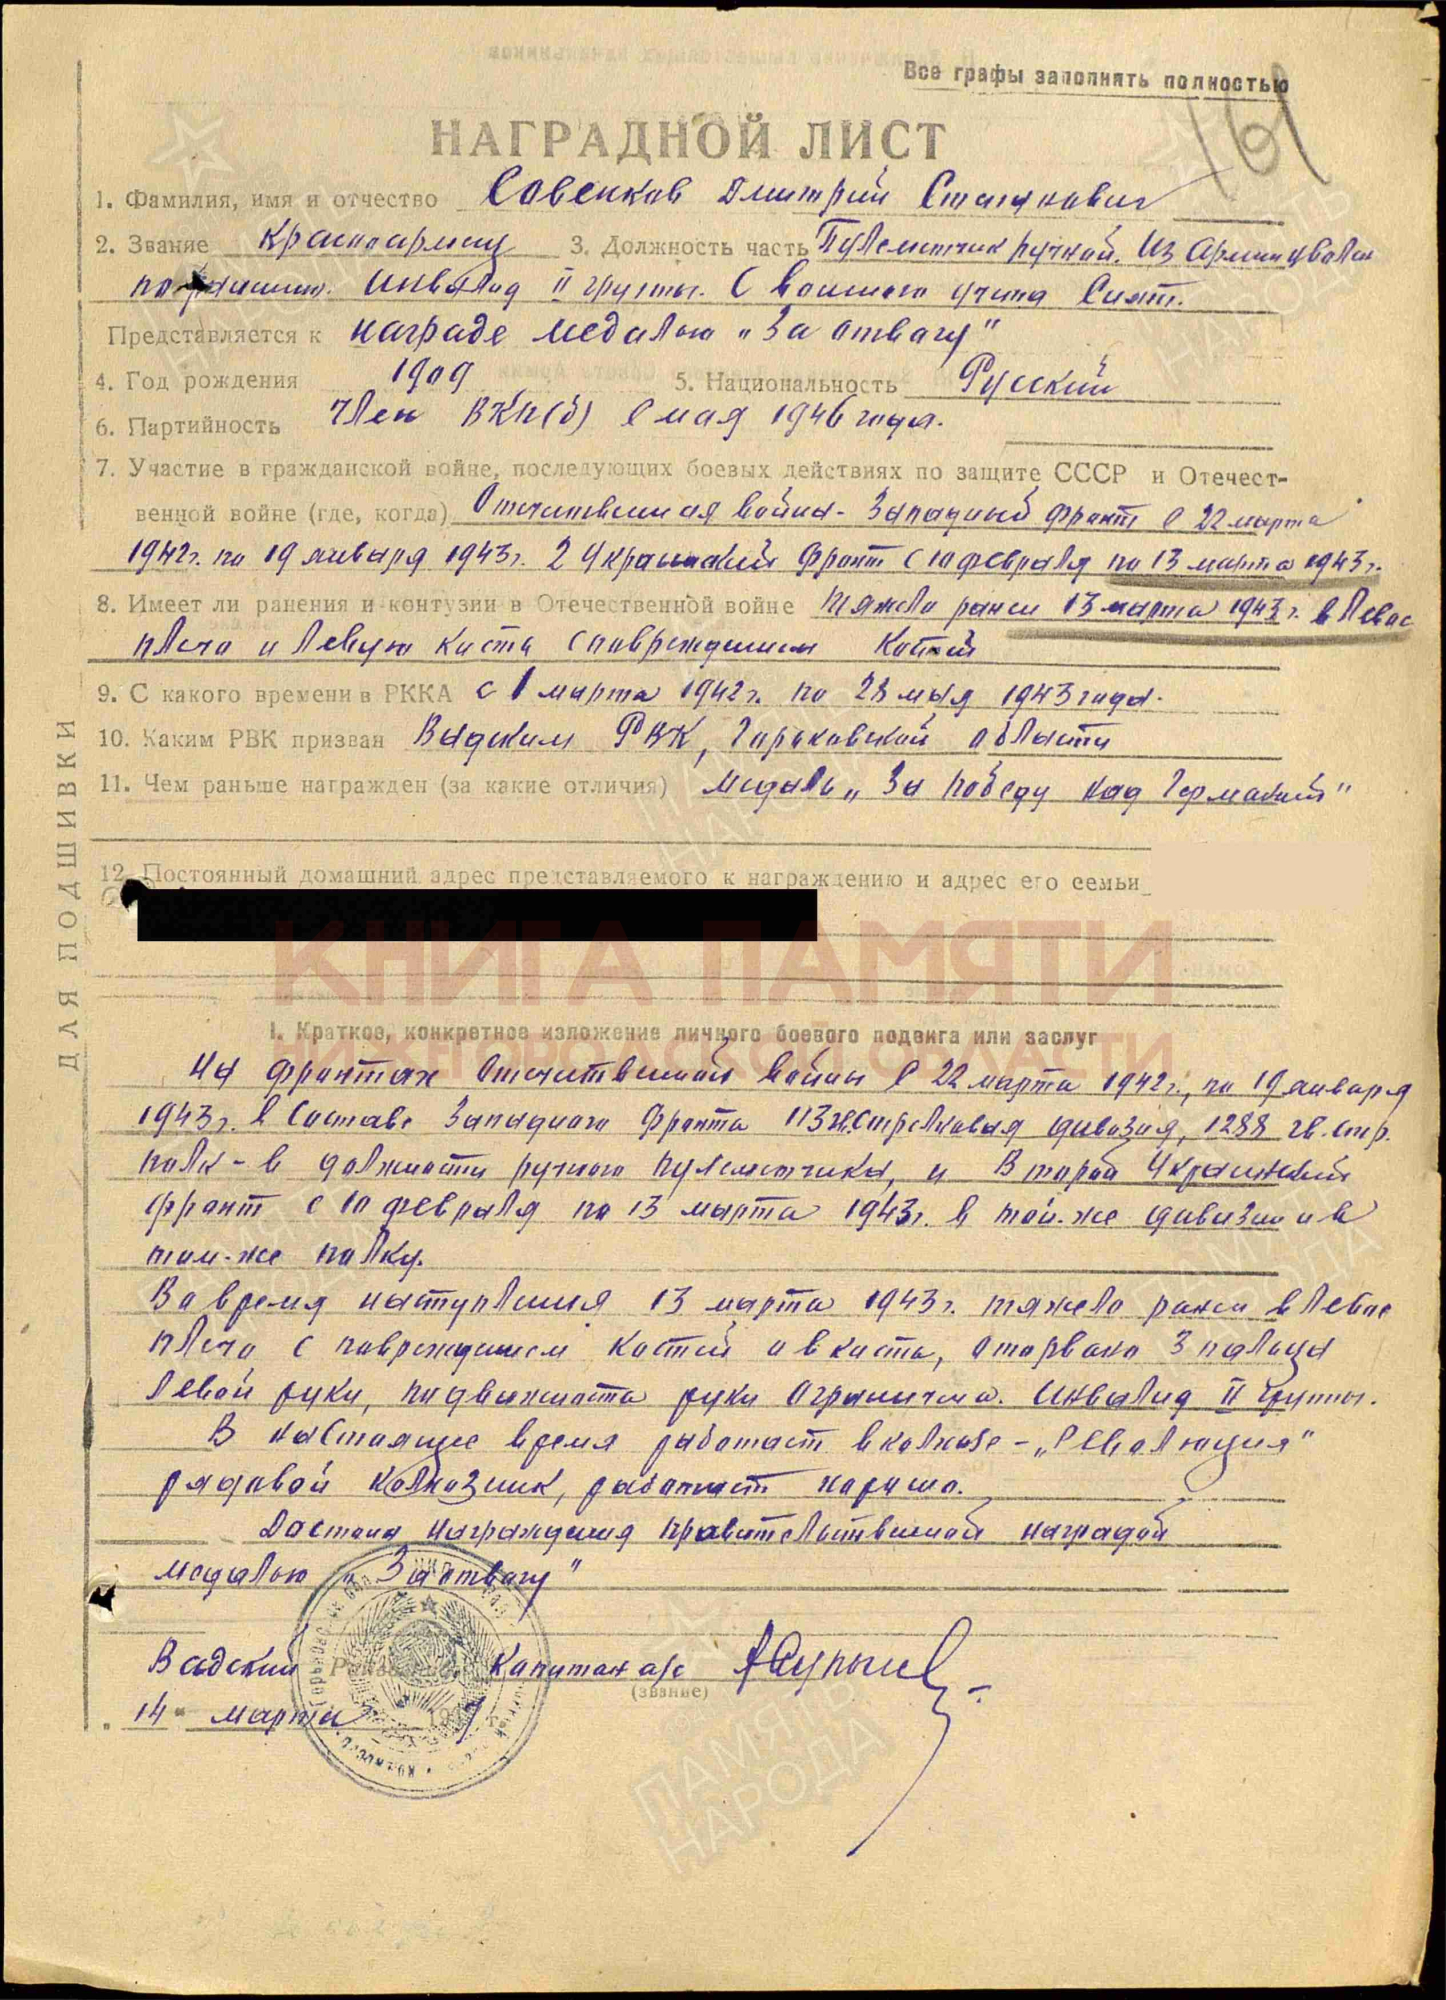 Все графы заполнять полностью
161
НАГРАДНОЙ ЛИСТ
1. Фамилия, имя и отчество Совенков Дмитрий Степанович
2. Звание красноармеец 3. Должность часть Пулеметчик ручной. Из армии уволен
по ранению. Инвалид II группы. С воинского учета снят.
Представляется к награде медалью „За отвагу"
4. Год рождения 1909 5. Национальность Русский
6. Партийность член ВКП(б) с мая 1946 года.
7. Участие в гражданской войне, последующих боевых действиях по защите СССР и Отечест-
венной войне (где, когда) Отечественная война - Западный фронт с 22 марта
1942г. по 19 января 1943г. 2 Украинский фронт с 10 февраля по 13 марта 1943г.
8. Имеет ли ранения и контузии в Отечественной войне тяжело ранен 13 марта 1943г. в левое
плечо и левую кисть с повреждением костей
9. С какого времени в РККА с 1 марта 1942г. по 28 мая 1943 года.
10. Каким РВК призван Вадским РВК, Горьковской области
11. Чем раньше награжден (за какие отличия) медаль „За победу над Германией"
12. Постоянный домашний адрес представляемого к награждению и адрес его семьи
КНИГА ПАМЯТИ
НИЖЕГОРОДСКОЙ ОБЛАСТИ
I. Краткое, конкретное изложение личного боевого подвига или заслуг
На фронтах Отечественной войны с 22 марта 1942г., по 19 января
1943г. в составе Западного фронта 113 гв. стрелковая дивизия, 1288 гв. стр.
полк - в должности ручного пулеметчика, и Второй Украинский
фронт с 10 февраля по 13 марта 1943г. в той-же дивизии и в
том-же полку.
Во время наступления 13 марта 1943г. тяжело ранен в левое
плечо с повреждением костей и в кисть, оторвано 3 пальца
левой руки, подвижность руки ограничена. Инвалид II группы.
В настоящее время работает в колхозе - „Революция"
рядовой колхозник, работает хорошо.
Достоин награждения правительственной наградой
медалью „За отвагу"
Вадский Райвоенком Капитан а/с
(звание)
„14" марта 1947
ДЛЯ ПОДШИВКИ
ПАМЯТЬ
НАРОДА